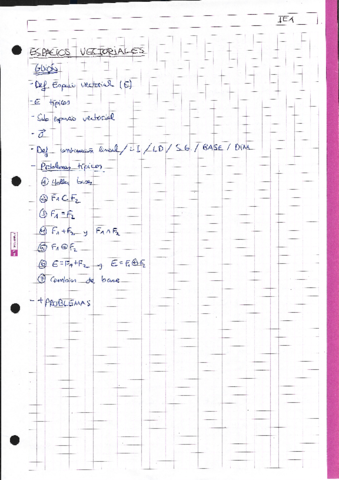 IE1
ESPACIOS VECTORIALES
- Def. Espacio vectorial (E)
- E típicos
- Sub espacio vectorial
- Def. combinación lineal / LI / LD / S.G / BASE / DIM
- Problemas típicos:
① Hallar base
② F1 ⊂ F2
③ F1 = F2
④ F1+F2 y F1∩F2
⑤ F1⊕F2
⑥ E=F1+F2 y E=F1⊕F2
⑦ Cambio de base
- + PROBLEMAS